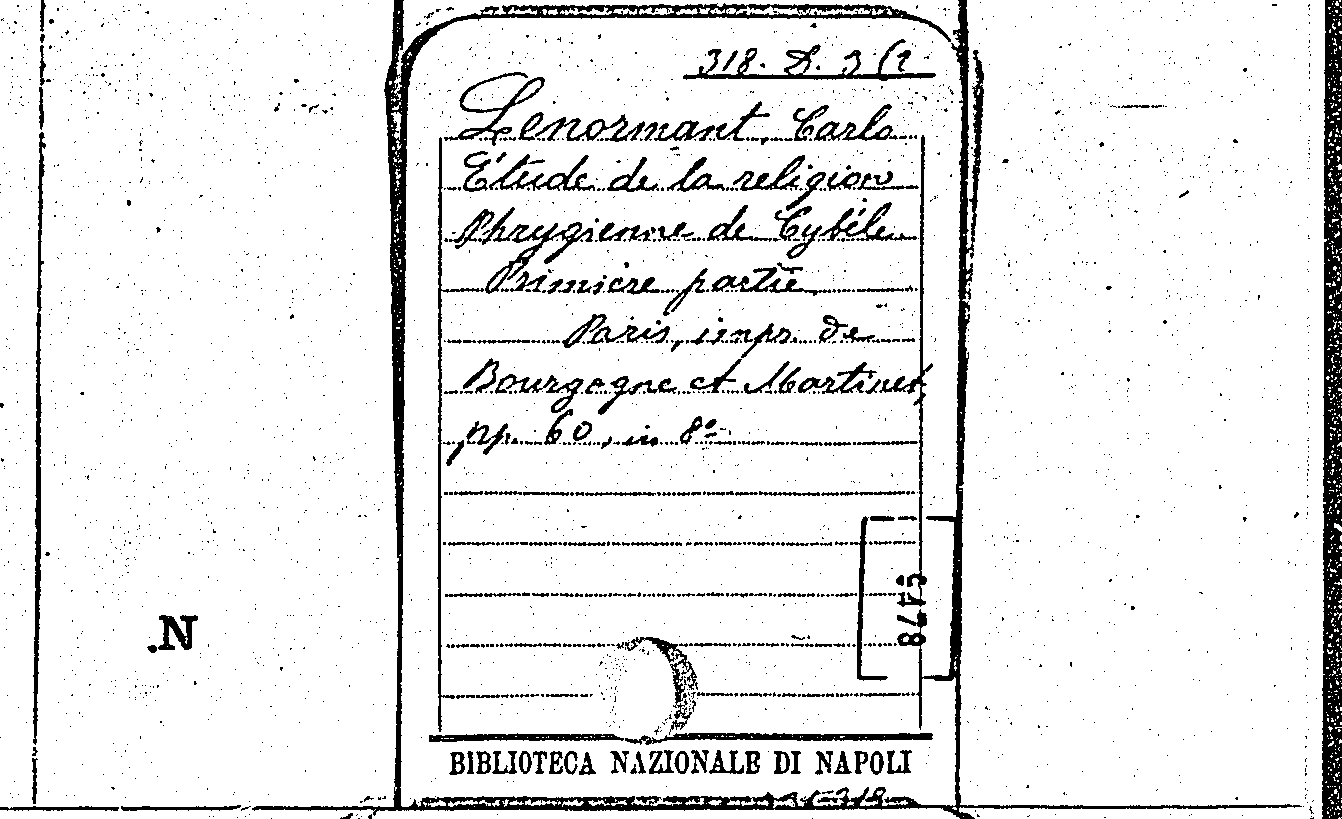 318. D. 3 (2
Lenormant, Carlo
Étude de la religion
Phrygienne de Cybéle.
Primière partie.
Paris, impr. de
Bourgogne et Martinet,
pp. 60, in 8º
5478
.N
BIBLIOTECA NAZIONALE DI NAPOLI